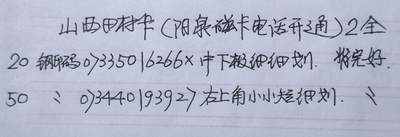 山西田村卡（阳泉磁卡电话开通）2全
20 钢码07335016266X 中下板细细划. 将完好.
50 〃 073440193927 右上角小小短细划. 〃